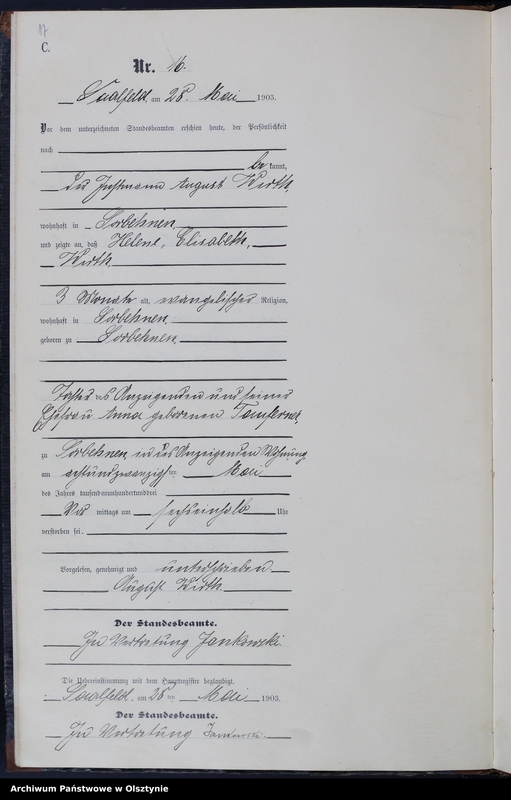 17
C.
Nr. 16.
Saalfeld, am 28. Mai 1903.
Vor dem unterzeichneten Standesbeamten erschien heute, der Persönlichkeit
nach
be kannt,
der Instmann August Wirth
wohnhaft in Sorbehnen
und zeigte an, daß Helene, Elisabeth,
Wirth
3 Monate alt, evangelischer Religion,
wohnhaft in Sorbehnen
geboren zu Sorbehnen
Tochter des Anzeigenden und seiner
Ehefrau Anna geborenen
zu Sorbehnen in des Anzeigenden Wohnung
am achtundzwanzigsten Mai
des Jahres tausendneunhundertunddrei
Vor mittags um sechseinhalb Uhr
verstorben sei.
Vorgelesen, genehmigt und unterschrieben
August Wirth
Der Standesbeamte.
In Vertretung Jankowski
Die Uebereinstimmung mit dem Hauptregister beglaubigt.
Saalfeld, am 28 ten Mai 1903.
Der Standesbeamte.
In Vertretung Jankowski
Archiwum Państwowe w Olsztynie